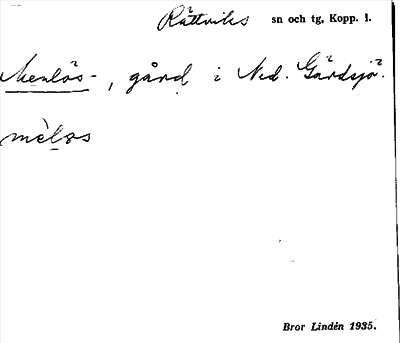 Rättviks sn och tg, Kopp. l.
Menlös-, gård i Ned. Gärdsjö.
mèlos
Bror Lindén 1935.